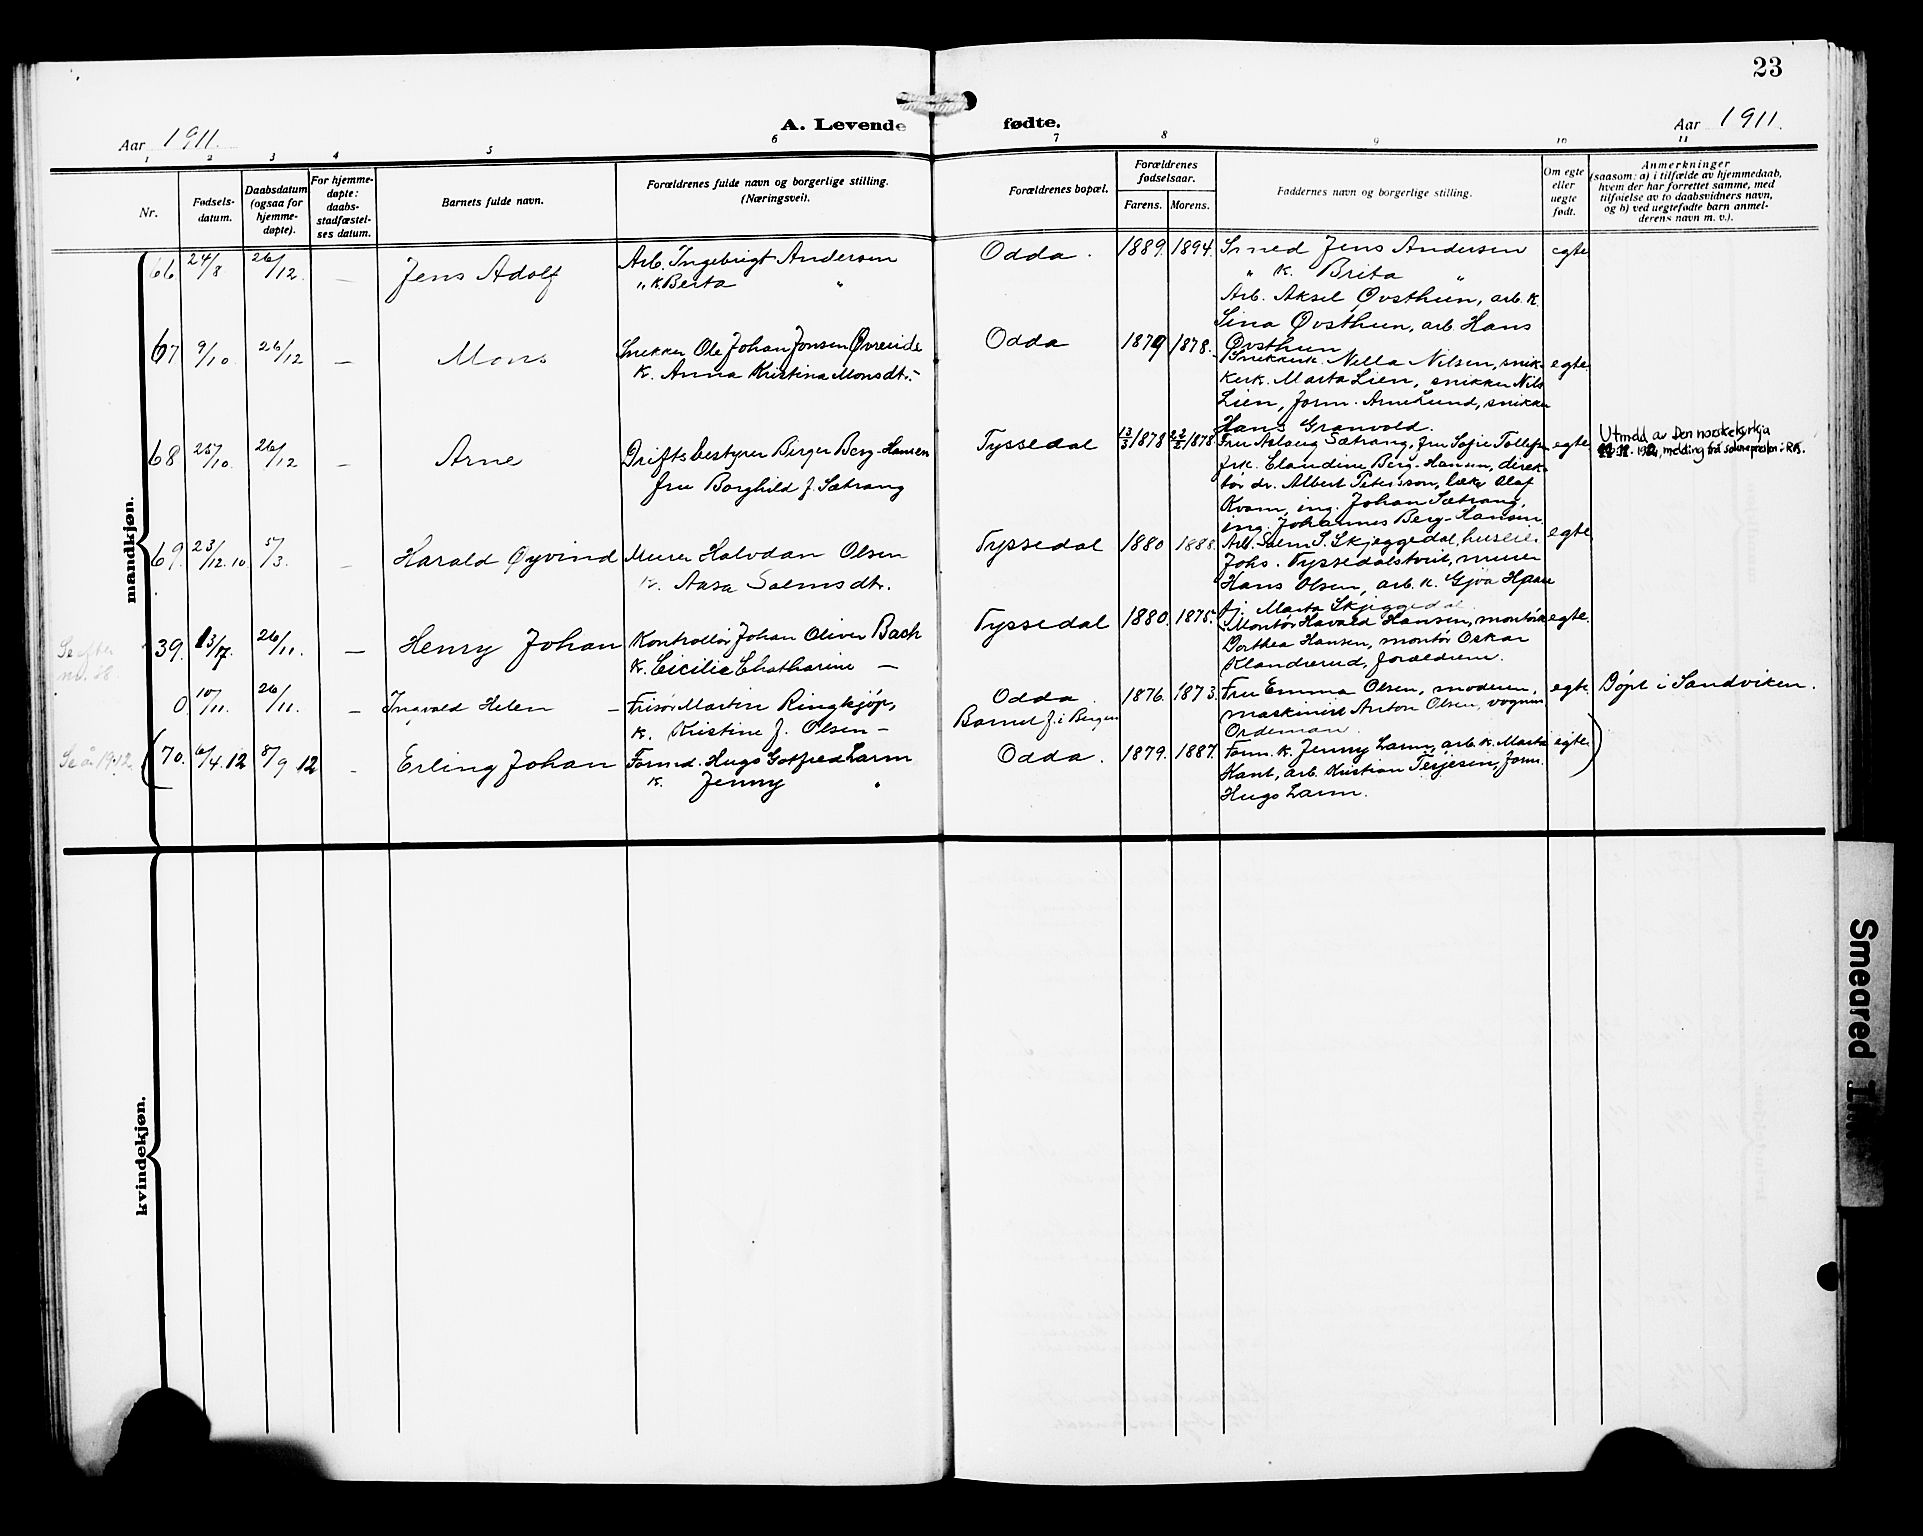 23
A. Levende fødte.
Aar 1911.
Aar 1911.
1 2 3 4 5 6 7 8 9 10 11
Nr.
Fødsels-
datum.
Daabsdatum
(ogsaa for
hjemme-
døpte).
For hjemme-
døpte:
daabs-
stadfæstel-
ses datum.
Barnets fulde navn.
Forældrenes fulde navn og borgerlige stilling.
(Næringsvei).
Forældrenes bopæl.
Forældrenes
fødselsaar.
Farens. Morens.
Faddernes navn og borgerlige stilling.
Om egte
eller
uegte
født.
Anmerkninger
(saasom: a) i tilfælde av hjemmedaab,
hvem der har forrettet samme, med
tilføielse av to daabsvidners navn,
og b) ved uegtefødte barn anmel-
derens navn m. v.).
mandkjøn.
66 24/8. 26/12. — Jens Adolf
Arb. Ingebrigt Andersen
" k. Berta "
Odda. 1889. 1894.
Smed Jens Andersen
" k. Brita "
Arb. Aksel Øvsthun, arb. k.
Sina Øvsthun, arb. Hans
Øvsthun
egte
67 9/10. 26/12 — Mons
Snekker Ole Johan Jonsen Øvreeide
k. Anna Kristina Monsdt.
Odda 1879 1878.
Snekkerk. Nilla Nilsen, snik-
kerk. Marta Lien, snikker Nils
Lien, form. Arne Lund, snikker
Hans Granvold.
egte.
68 25/10. 26/12 — Arne
Driftsbestyrer Birger Berg-Hansen
fru Borghild f. Sætrang
Tyssedal 13/3 1878 1878
Fru Aslaug Sætrang, fru Sofie Tollefsen
frk. Claudine Berg-Hansen, direk-
tør dr. Albert Petersson, læke Olaf
Kvam, ing. Johan Sætrang,
ing. Johannes Berg-Hansen.
egte
Utmeld av Den norske kyrkja
melding frå soknepresten i
69. 23/12.10 5/3. — Harald Øyvind
Murer Halvdan Olsen
k. Aasa Salmsdt.
Tyssedal 1880 1888.
Arb. Salm S. Skjeggedal, huseier
Johs. Tyssedalstveit, murer
Hans Olsen, arb. k. Gjøa
pj. Marta Skjeggedal
egte
Se efter
no. 38.
39. 13/7. 26/11. — Henry Johan
Kontrollør Johan Oliver Bach
k. Cicilie Chatharine —
Tyssedal 1880. 1875.
Montør Havald Hansen, montørk.
Dorthea Hansen, montør Oskar
Klandrerud, forældrene.
egte.
0. 10/11. 26/11. — Ingvald Helen —
Frisør Martin Ringkjøp,
k. Kristine f. Olsen —
Odda.
Barnet f. i Bergen
1876. 1873.
Fru Emma Olsen, moderen,
maskinist Anton Olsen, vognm.
Ordeman.
egte
Døpt i Sandviken.
Se år 1912.
(70. 6/4.12 8/9 12 — Erling Johan
Formd. Hugo Gotfred Larm
k. Jenny "
Odda. 1879. 1887.
Form. k. Jenny Larm, arb. k. Marta
Hant, arb. Kristian Terjesen, form.
Hugo Larm.
egte)
kvindekjøn.
Smeared